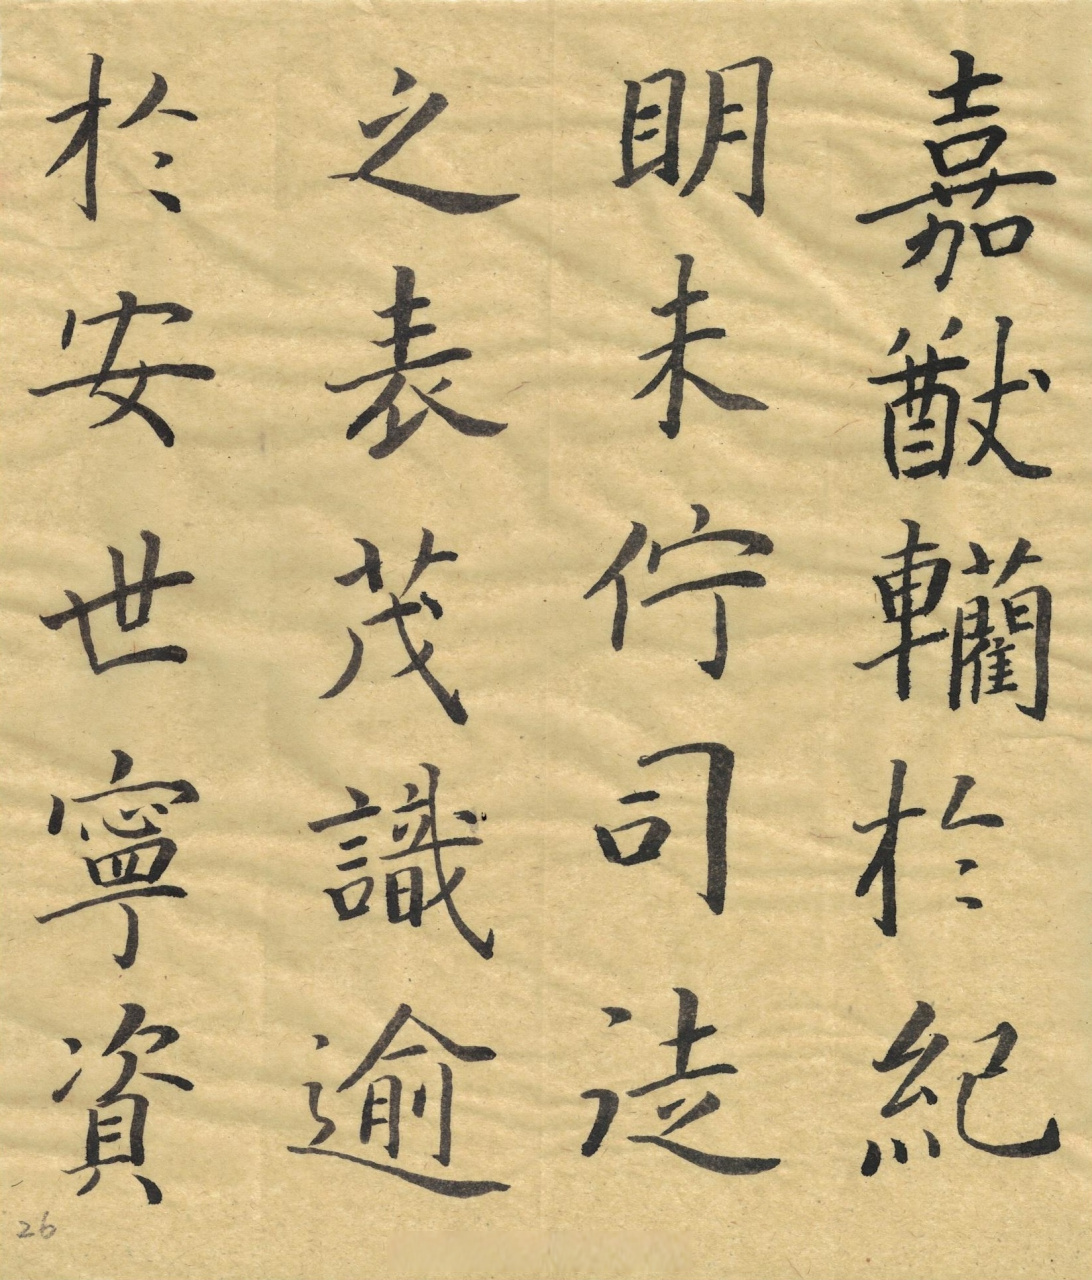 嘉猷轥於紀
眀未佇司徒
之表茂識逾
於安世寧資
26